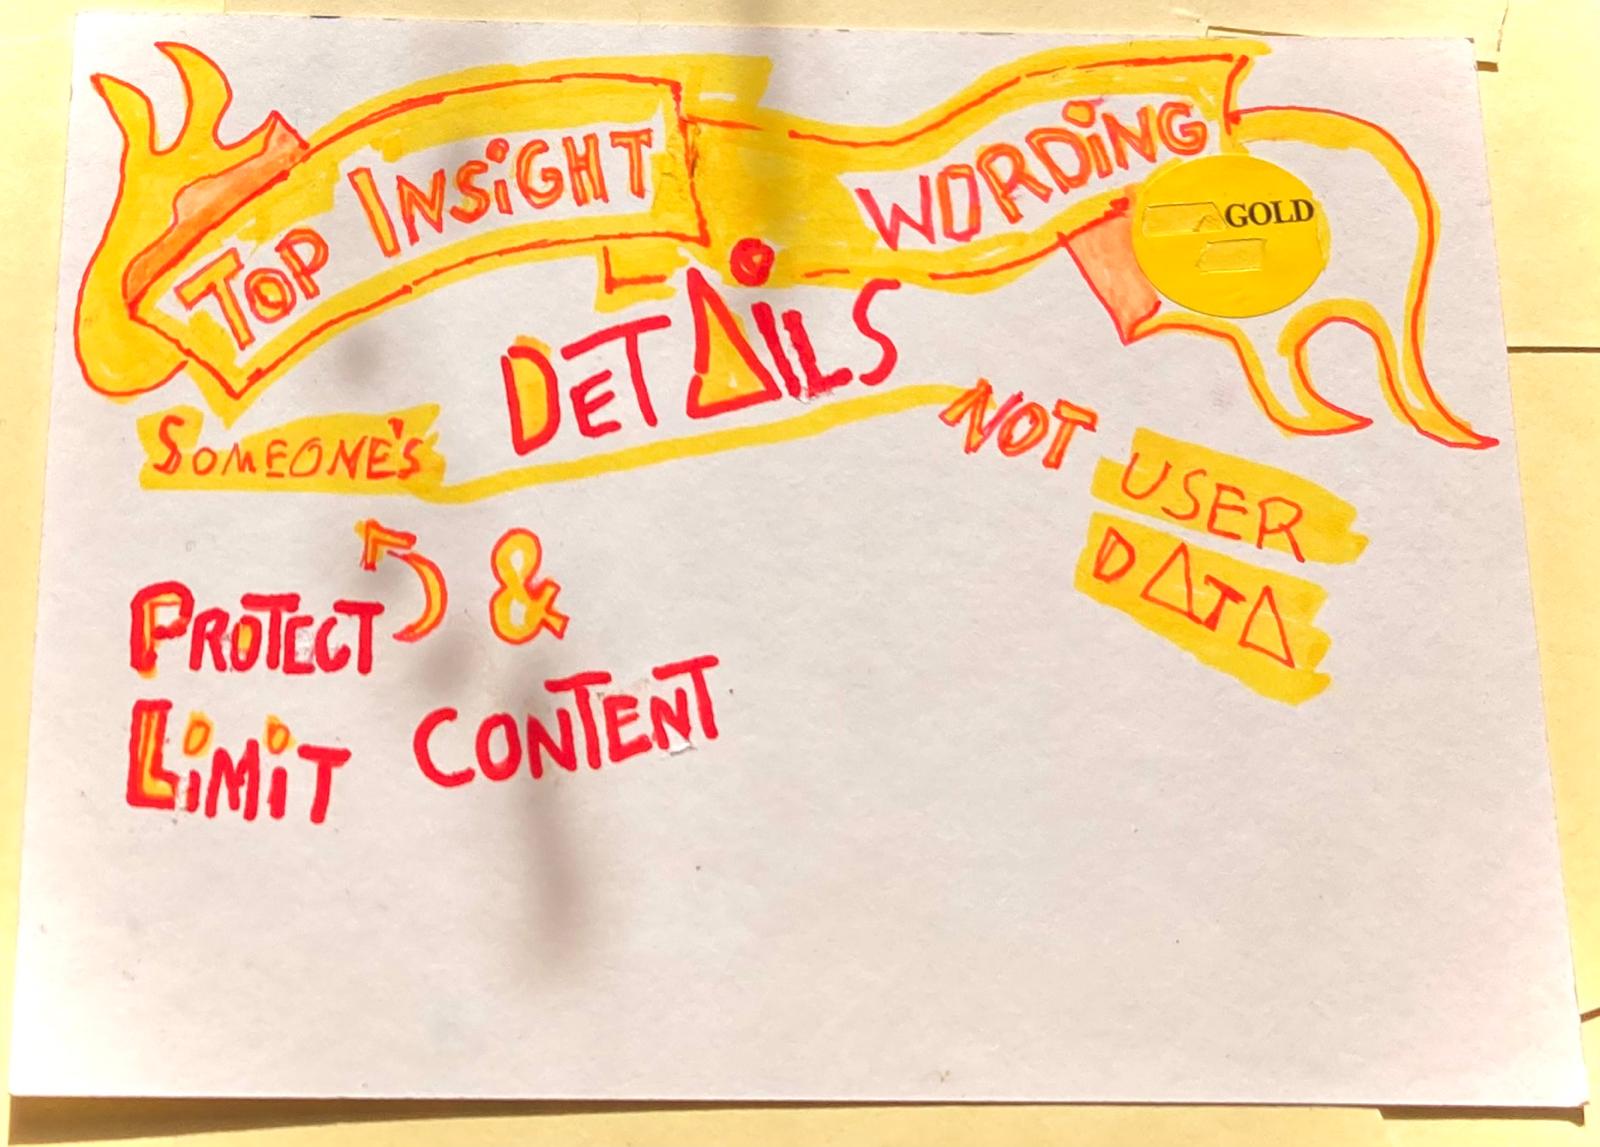 TOP INSiGHT WORDiNG
GOLD
DETAiLS
SOMEONE'S
NOT
USER
DATA
PROTECT &
LiMiT CONTENT